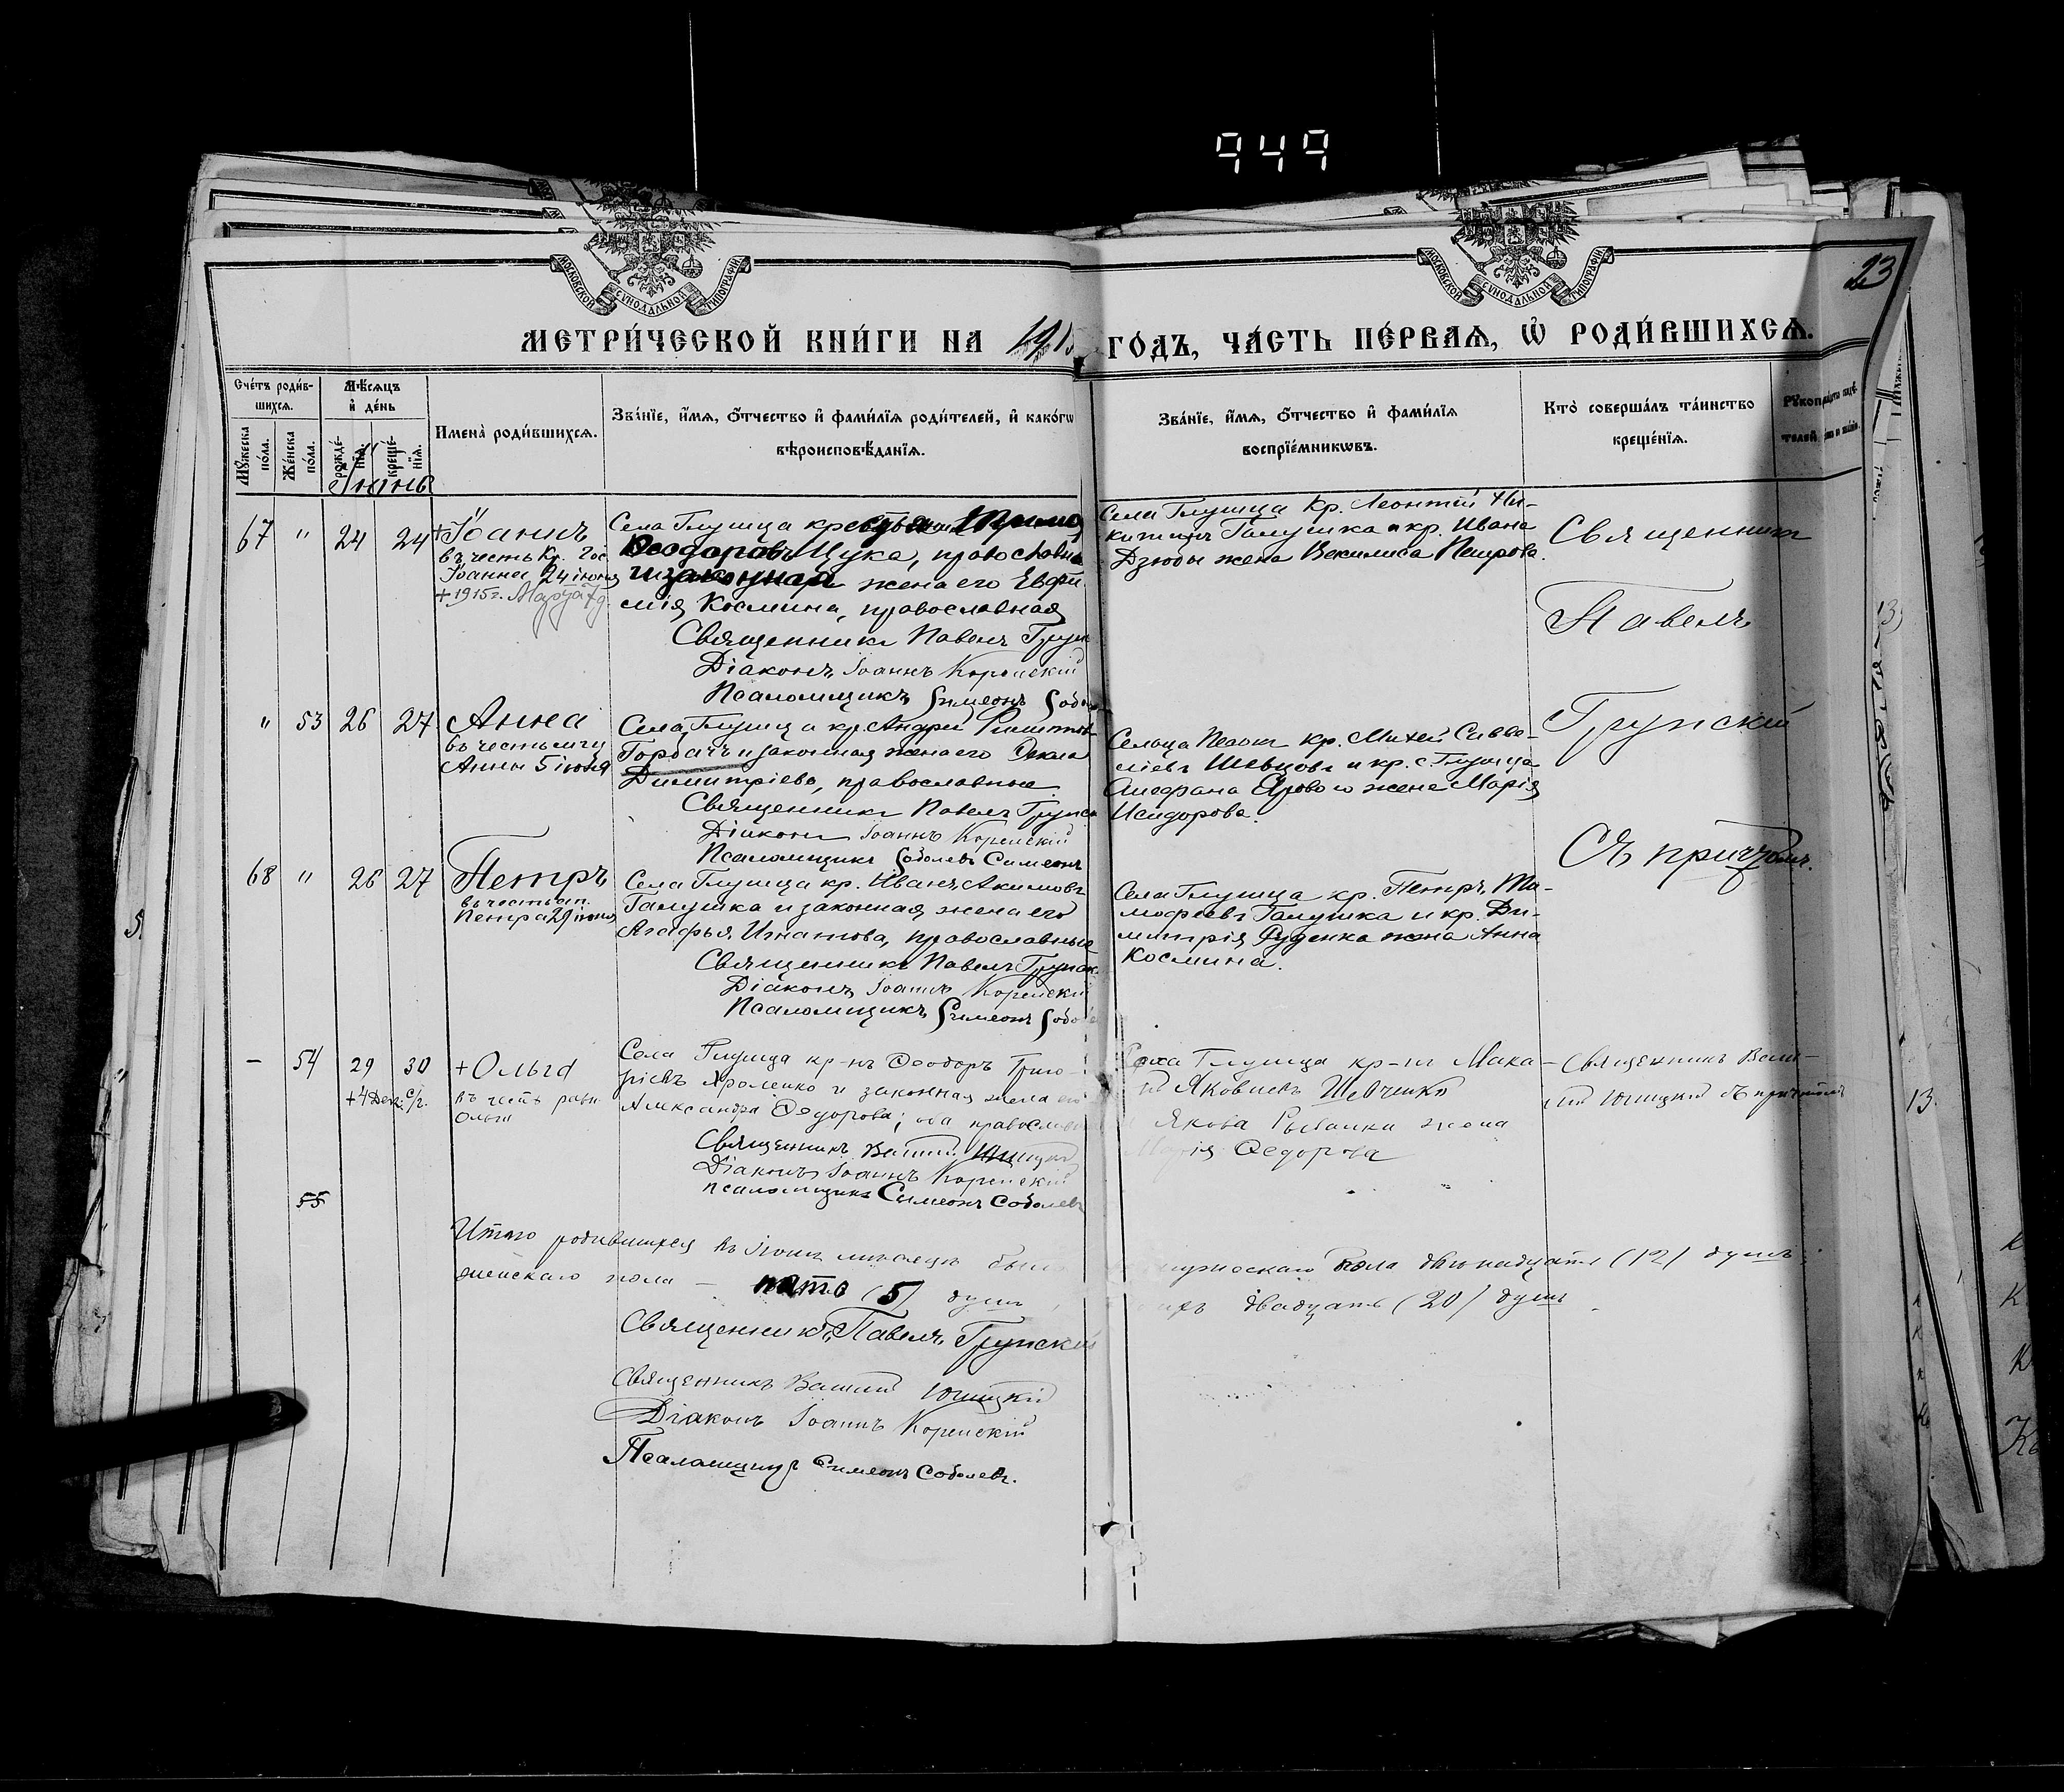 949
23
МОСКОВСКОЙ СУНОДАЛЬНОЙ ТИПОГРАФІИ
МОСКОВСКОЙ СУНОДАЛЬНОЙ ТИПОГРАФІИ
МЕТРИ́ЧЕСКОЙ КНИ́ГИ НА 191
ГО́ДЪ, ЧА́СТЬ ПЕ́РВАѦ, Ѡ҆ РОДИ́ВШИХСѦ.
Сче́тъ роди́в-
шихсѧ.
Мꙋ́жеска
по́ла.
Же́нска
по́ла.
Мѣ́сѧцъ
и҆ де́нь
рожде́-
нїѧ.
креще́-
нїѧ.
Имена̀ роди́вшихсѧ.
Зва́нїе, и҆́мѧ, ѻ҆́тчество и҆ фами́лїѧ роди́телей, и҆ како́гѡ
вѣроисповѣ́данїѧ.
Зва́нїе, и҆́мѧ, ѻ҆́тчество и҆ фами́лїѧ
воспрїе́мникѡвъ.
Кто̀ соверша́лъ та́инство
креще́нїѧ.
Іюнь
67 " 24 24
+ Іоаннъ
въ честь Кр. Гос.
Іоанна 24 іюня
+ 1915 г. Марта 7 д.
Села Глушца крестьянинъ
Феодоровъ Цука, православн
и законная жена его Евфи-
мія Космина, православная
Священникъ Павелъ Труп
Діаконъ Іоаннъ Коренскій
Псаломщикъ Симеонъ Собол
Села Глушца кр. Леонтій Ни-
китинъ Галушка и кр. Ивана
Дзюбы жена Векилиса Петрова.
Священникъ
Павелъ
Трупскій
Съ причтомъ.
" 53 26 27
Анна
въ честь мчц
Анны 5 іюля
Села Глушца кр. Андрей
Горбачъ и законная жена его Фекла
Димитріева, православные
Священникъ Павелъ Трупск
Діаконъ Іоаннъ Коренскій
Псаломщикъ Соболевъ Симеонъ
Сельца Песокъ кр. Михей Савве-
ліевъ Шевцовъ и кр. с Глушца
жена Марія
Исидорова.
68 " 26 27
Петръ
въ честь ап.
Петра 29 іюня
Села Глушца кр. Иванъ Акимовъ
Галушка и законная жена его
Агафья Игнатова, православные
Священникъ Павелъ Трупск
Діаконъ Іоаннъ Коренскій
Псаломщикъ Симеонъ Собол
Села Глушца кр. Петръ Ти-
мофеевъ Галушка и кр. Ди-
митрія Руденка жена Анна
Космина.
- 54 29 30
+ 4 Дек. с/г.
+ Ольга
въ честь равн.
Ольги
Села Глушца кр-нъ Феодоръ Григо-
ріевъ Яроменко и законная жена его
Александра Федорова; оба православн
Священникъ
Діаконъ Іоаннъ Коренскій
псаломщикъ Симеонъ Соболевъ
Села Глушца кр-нъ Мака-
рій Яковлевъ Шевченко
Якова Рыбалки жена
Марія Федорова
Священникъ
съ причтомъ
55
Итого родившихся въ іюнѣ мѣсяцѣ было
мужескаго пола двѣнадцать (12) душъ,
женскаго пола — пять (5) душъ,
двадцать (20) душъ
Священникъ Павелъ Трупскій
Священникъ
Діаконъ Іоаннъ Коренскій
Псаломщикъ Симеонъ Соболевъ.
13